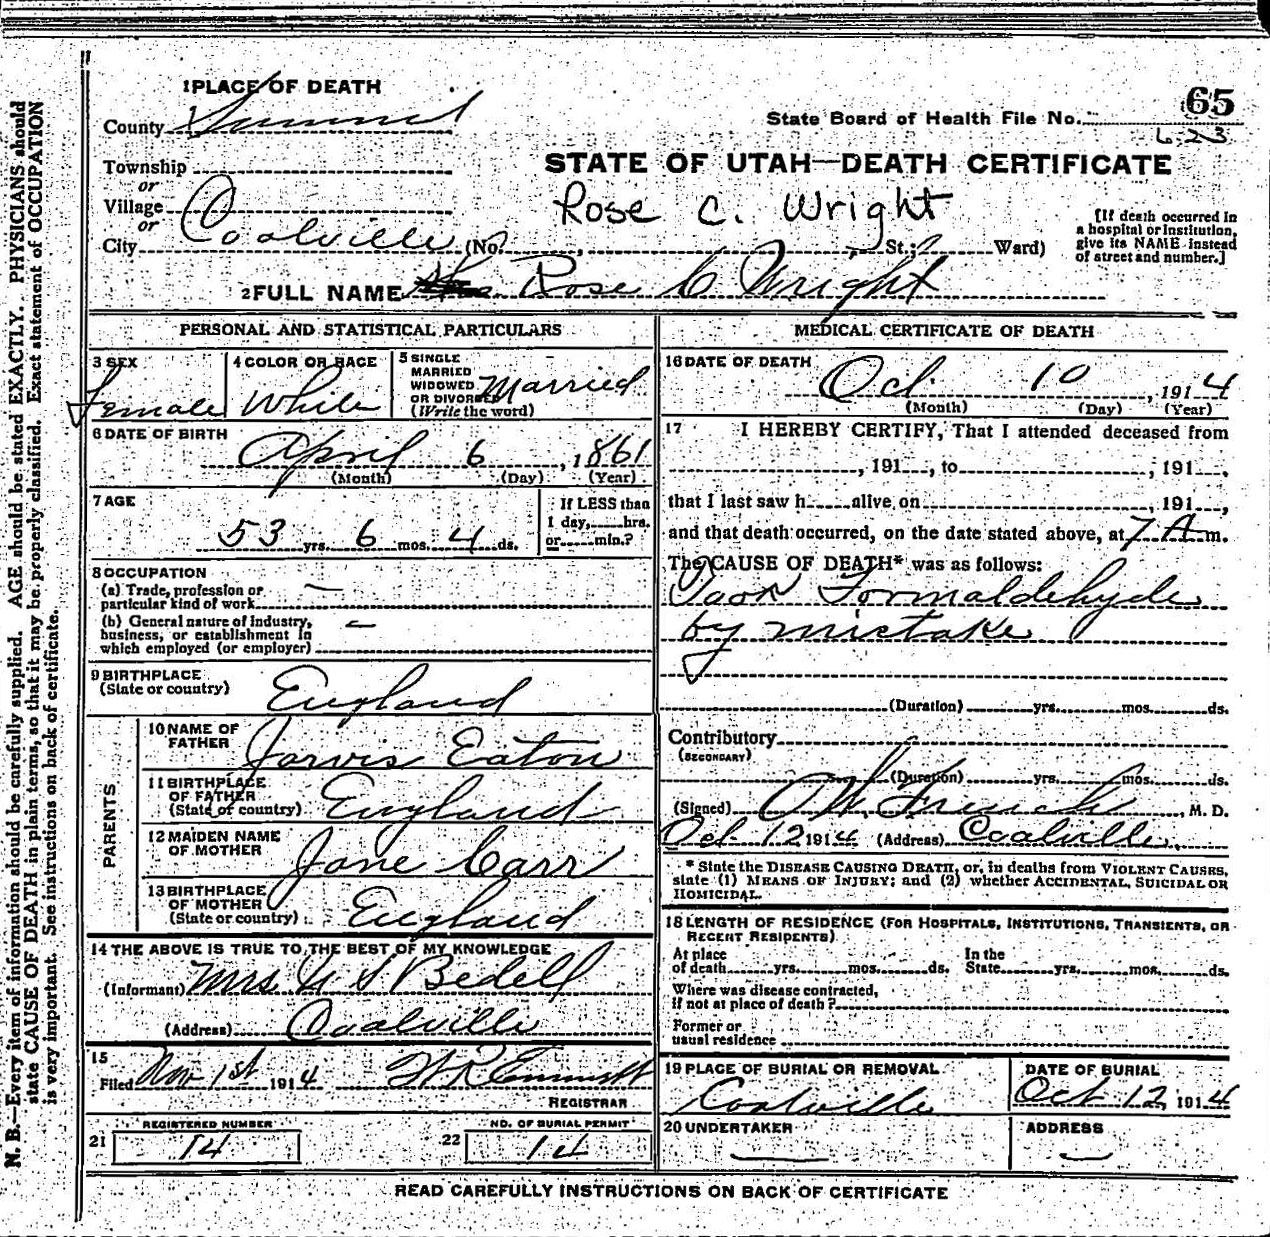 1 PLACE OF DEATH
County Summit
Township
or
Village
or
City Coalville (No. , St.; Ward)
65
State Board of Health File No.
623
STATE OF UTAH—DEATH CERTIFICATE
Rose C. Wright
[If death occurred in
a hospital or institution,
give its NAME instead
of street and number.]
2 FULL NAME Rose C Wright
PERSONAL AND STATISTICAL PARTICULARS
3 SEX
Female
4 COLOR OR RACE
White
5 SINGLE
MARRIED
WIDOWED
OR DIVORCED
(Write the word)
Married
6 DATE OF BIRTH
April 6, 1861
(Month) (Day) (Year)
7 AGE
53 yrs. 6 mos. 4 ds.
If LESS than
1 day, hrs.
or min.?
8 OCCUPATION
(a) Trade, profession or
particular kind of work —
(b) General nature of industry,
business, or establishment in
which employed (or employer) —
9 BIRTHPLACE
(State or country) England
PARENTS
10 NAME OF
FATHER Jarvis Eaton
11 BIRTHPLACE
OF FATHER
(State or country) England
12 MAIDEN NAME
OF MOTHER Jane Carr
13 BIRTHPLACE
OF MOTHER
(State or country) England
14 THE ABOVE IS TRUE TO THE BEST OF MY KNOWLEDGE
(Informant) Mrs. Bedell
(Address) Coalville
15
Filed Nov 1st 1914
REGISTRAR
REGISTERED NUMBER
21 14
NO. OF BURIAL PERMIT
22 14
MEDICAL CERTIFICATE OF DEATH
16 DATE OF DEATH
Oct. 10, 1914
(Month) (Day) (Year)
17 I HEREBY CERTIFY, That I attended deceased from
, 191 , to , 191 ,
that I last saw h alive on , 191 ,
and that death occurred, on the date stated above, at 7 A m.
The CAUSE OF DEATH* was as follows:
Took Formaldehyde
by mistake
(Duration) yrs. mos. ds.
Contributory
(SECONDARY)
(Duration) yrs. mos. ds.
(Signed) French, M. D.
Oct 12 1914 (Address) Coalville.
* State the DISEASE CAUSING DEATH, or, in deaths from VIOLENT CAUSES,
state (1) MEANS OF INJURY; and (2) whether ACCIDENTAL, SUICIDAL OR
HOMICIDAL.
18 LENGTH OF RESIDENCE (FOR HOSPITALS, INSTITUTIONS, TRANSIENTS, OR
RECENT RESIDENTS)
At place
of death yrs. mos. ds.
In the
State yrs. mos. ds.
Where was disease contracted,
if not at place of death?
Former or
usual residence
19 PLACE OF BURIAL OR REMOVAL
Coalville
DATE OF BURIAL
Oct 12, 1914
20 UNDERTAKER
—
ADDRESS
—
READ CAREFULLY INSTRUCTIONS ON BACK OF CERTIFICATE
N. B.—Every item of information should be carefully supplied. AGE should be stated EXACTLY. PHYSICIANS should
state CAUSE OF DEATH in plain terms, so that it may be properly classified. Exact statement of OCCUPATION
is very important. See instructions on back of certificate.